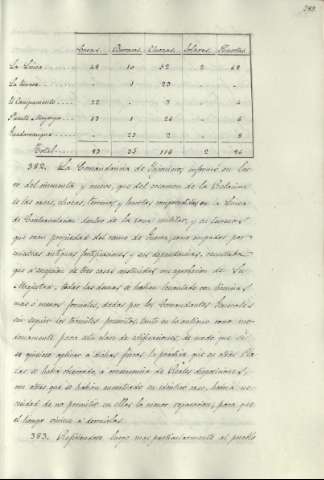 Casas. Barracas. Chozas. Solares. Huertos
La Línea . . . . . 48 10 52 2 68
La Atunara . . . . - 1 23 - -
El Campamento . . . . . 22 - 3 - 4
Puente Mayorga . . . 13 1 26 - 6
Guadarranque . . . . . - 23 2 - 8
Total . . . . 83 35 116 2 86
382. La Comandancia de Ingenieros informó en Ene-
ro del cincuenta y nueve, que del examen de la Relacion
de las casas, chozas, terrenos y huertos comprendidos en la Línea
de Contravalacion dentro de la zona militar, y en terrenos
que eran propiedad del ramo de Guerra, como ocupados por
nuestras antiguas fortificaciones y sus dependencias, resultaba
que a escepcion de tres casas construidas con aprobacion de Su
Magestad, todas las demas se habian levantado con licencias
mas ó menos formales, dadas por los Comandantes Generales
sin seguir los trámites prevenidos, tanto en lo antiguo como mo-
dernamente para esta clase de edificaciones; de modo que si
se quisiese aplicar a dichas fincas lo practicado en otras Pla-
zas se habia observado, a consecuencia de Reales disposiciones,
con otras que se habian encontrado en identico caso, habia ne-
cesidad de no permitir en ellas la menor reparacion, para que
el tiempo viniese a demolerlas.
383. Refiriendose luego mas particularmente al pueblo